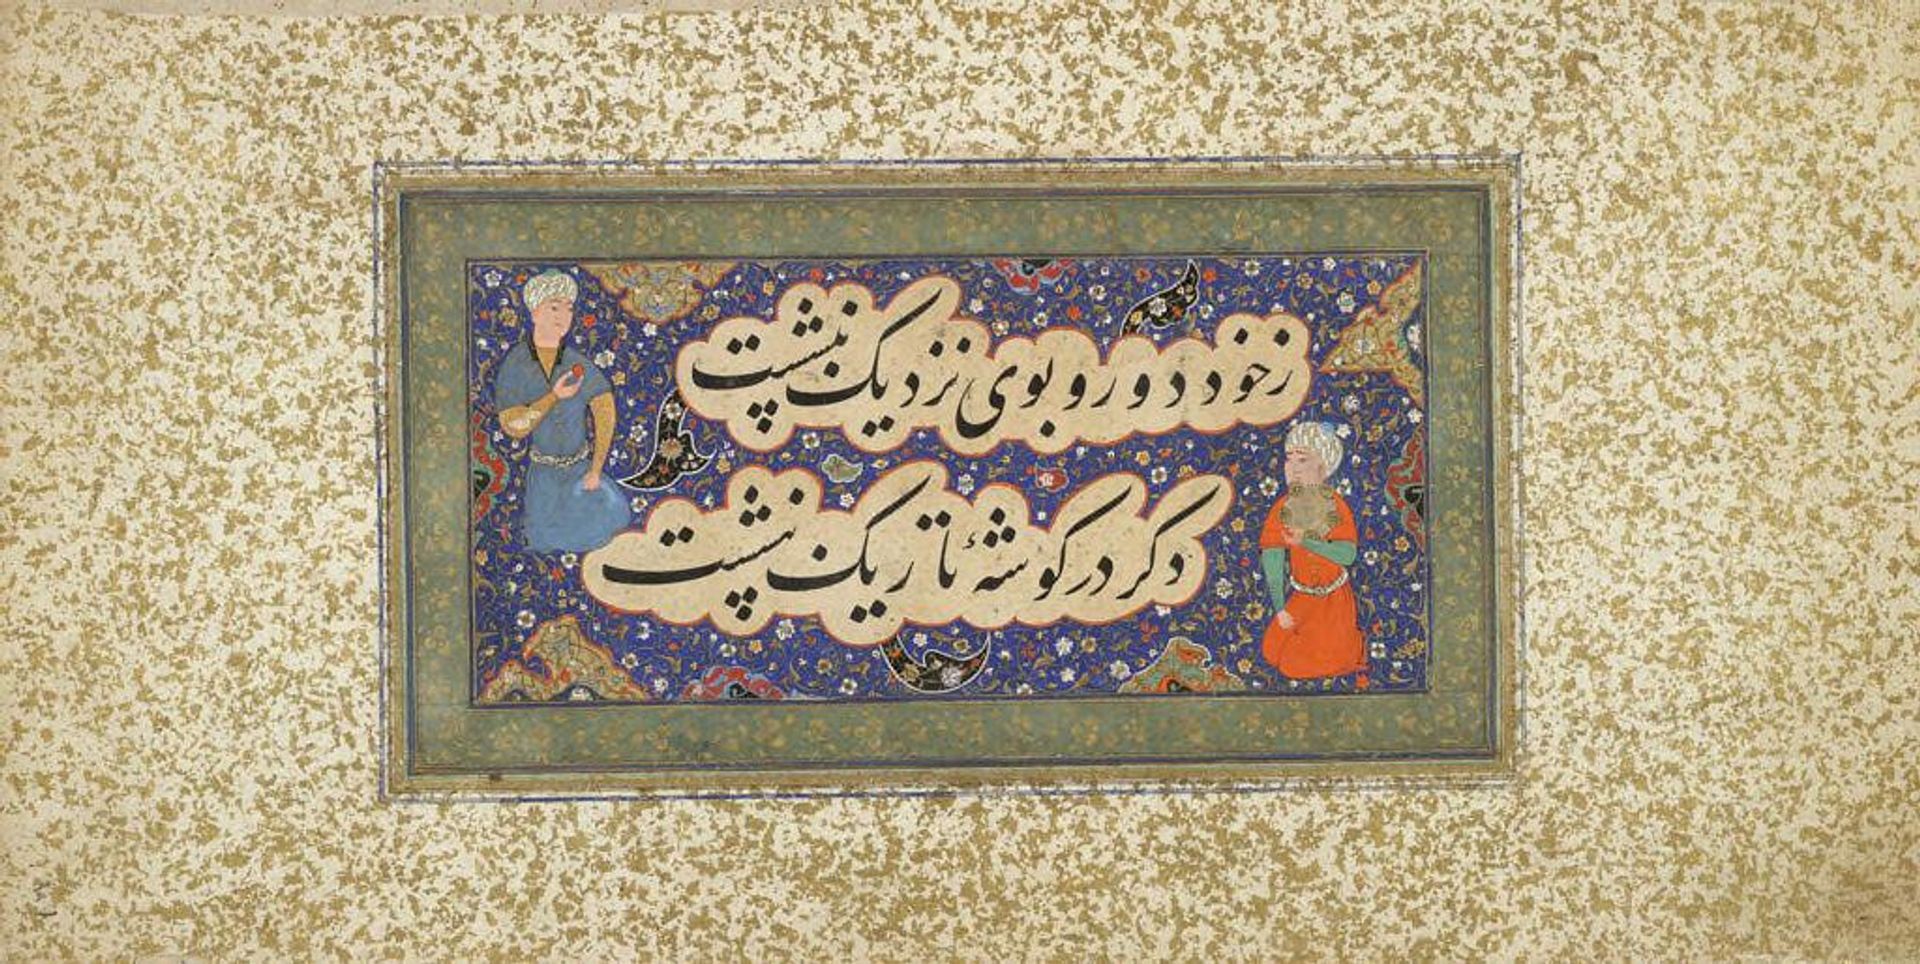 ز خود دور و بوی نزدیک بنشست
دگر در گوشهٔ تاریک بنشست